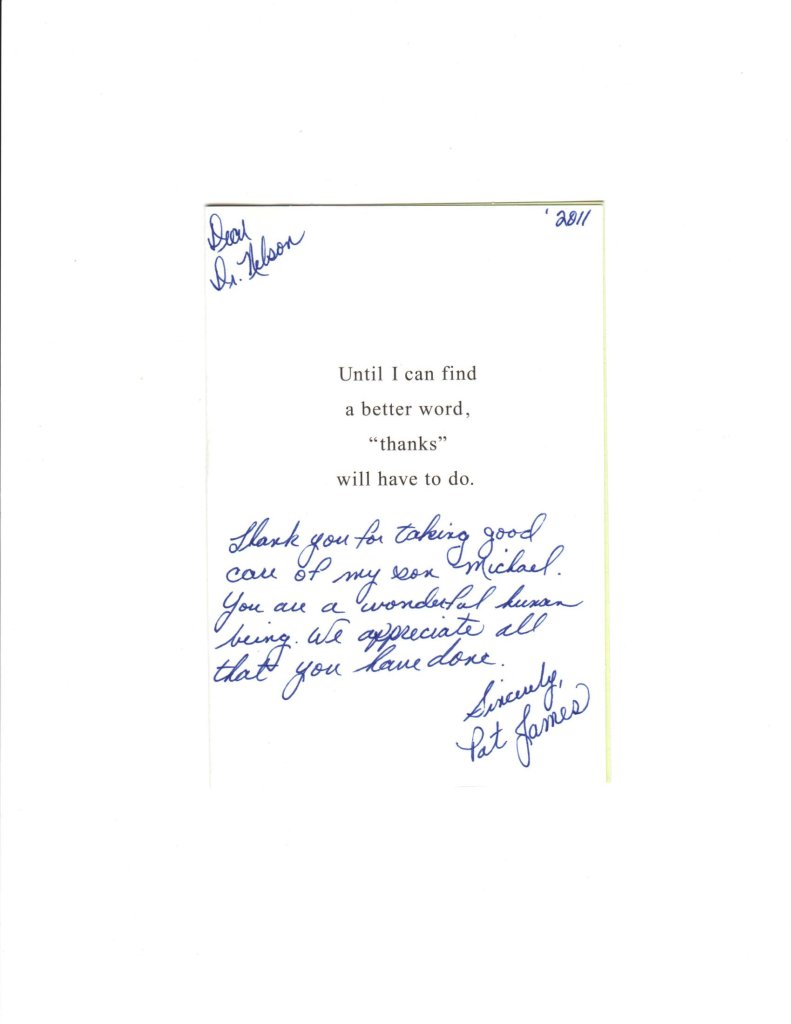 Dear
Dr. Nelson
'2011
Until I can find
a better word,
“thanks”
will have to do.
Thank you for taking good
care of my son Michael.
You are a wonderful human
being. We appreciate all
that you have done.
Sincerely,
Pat James